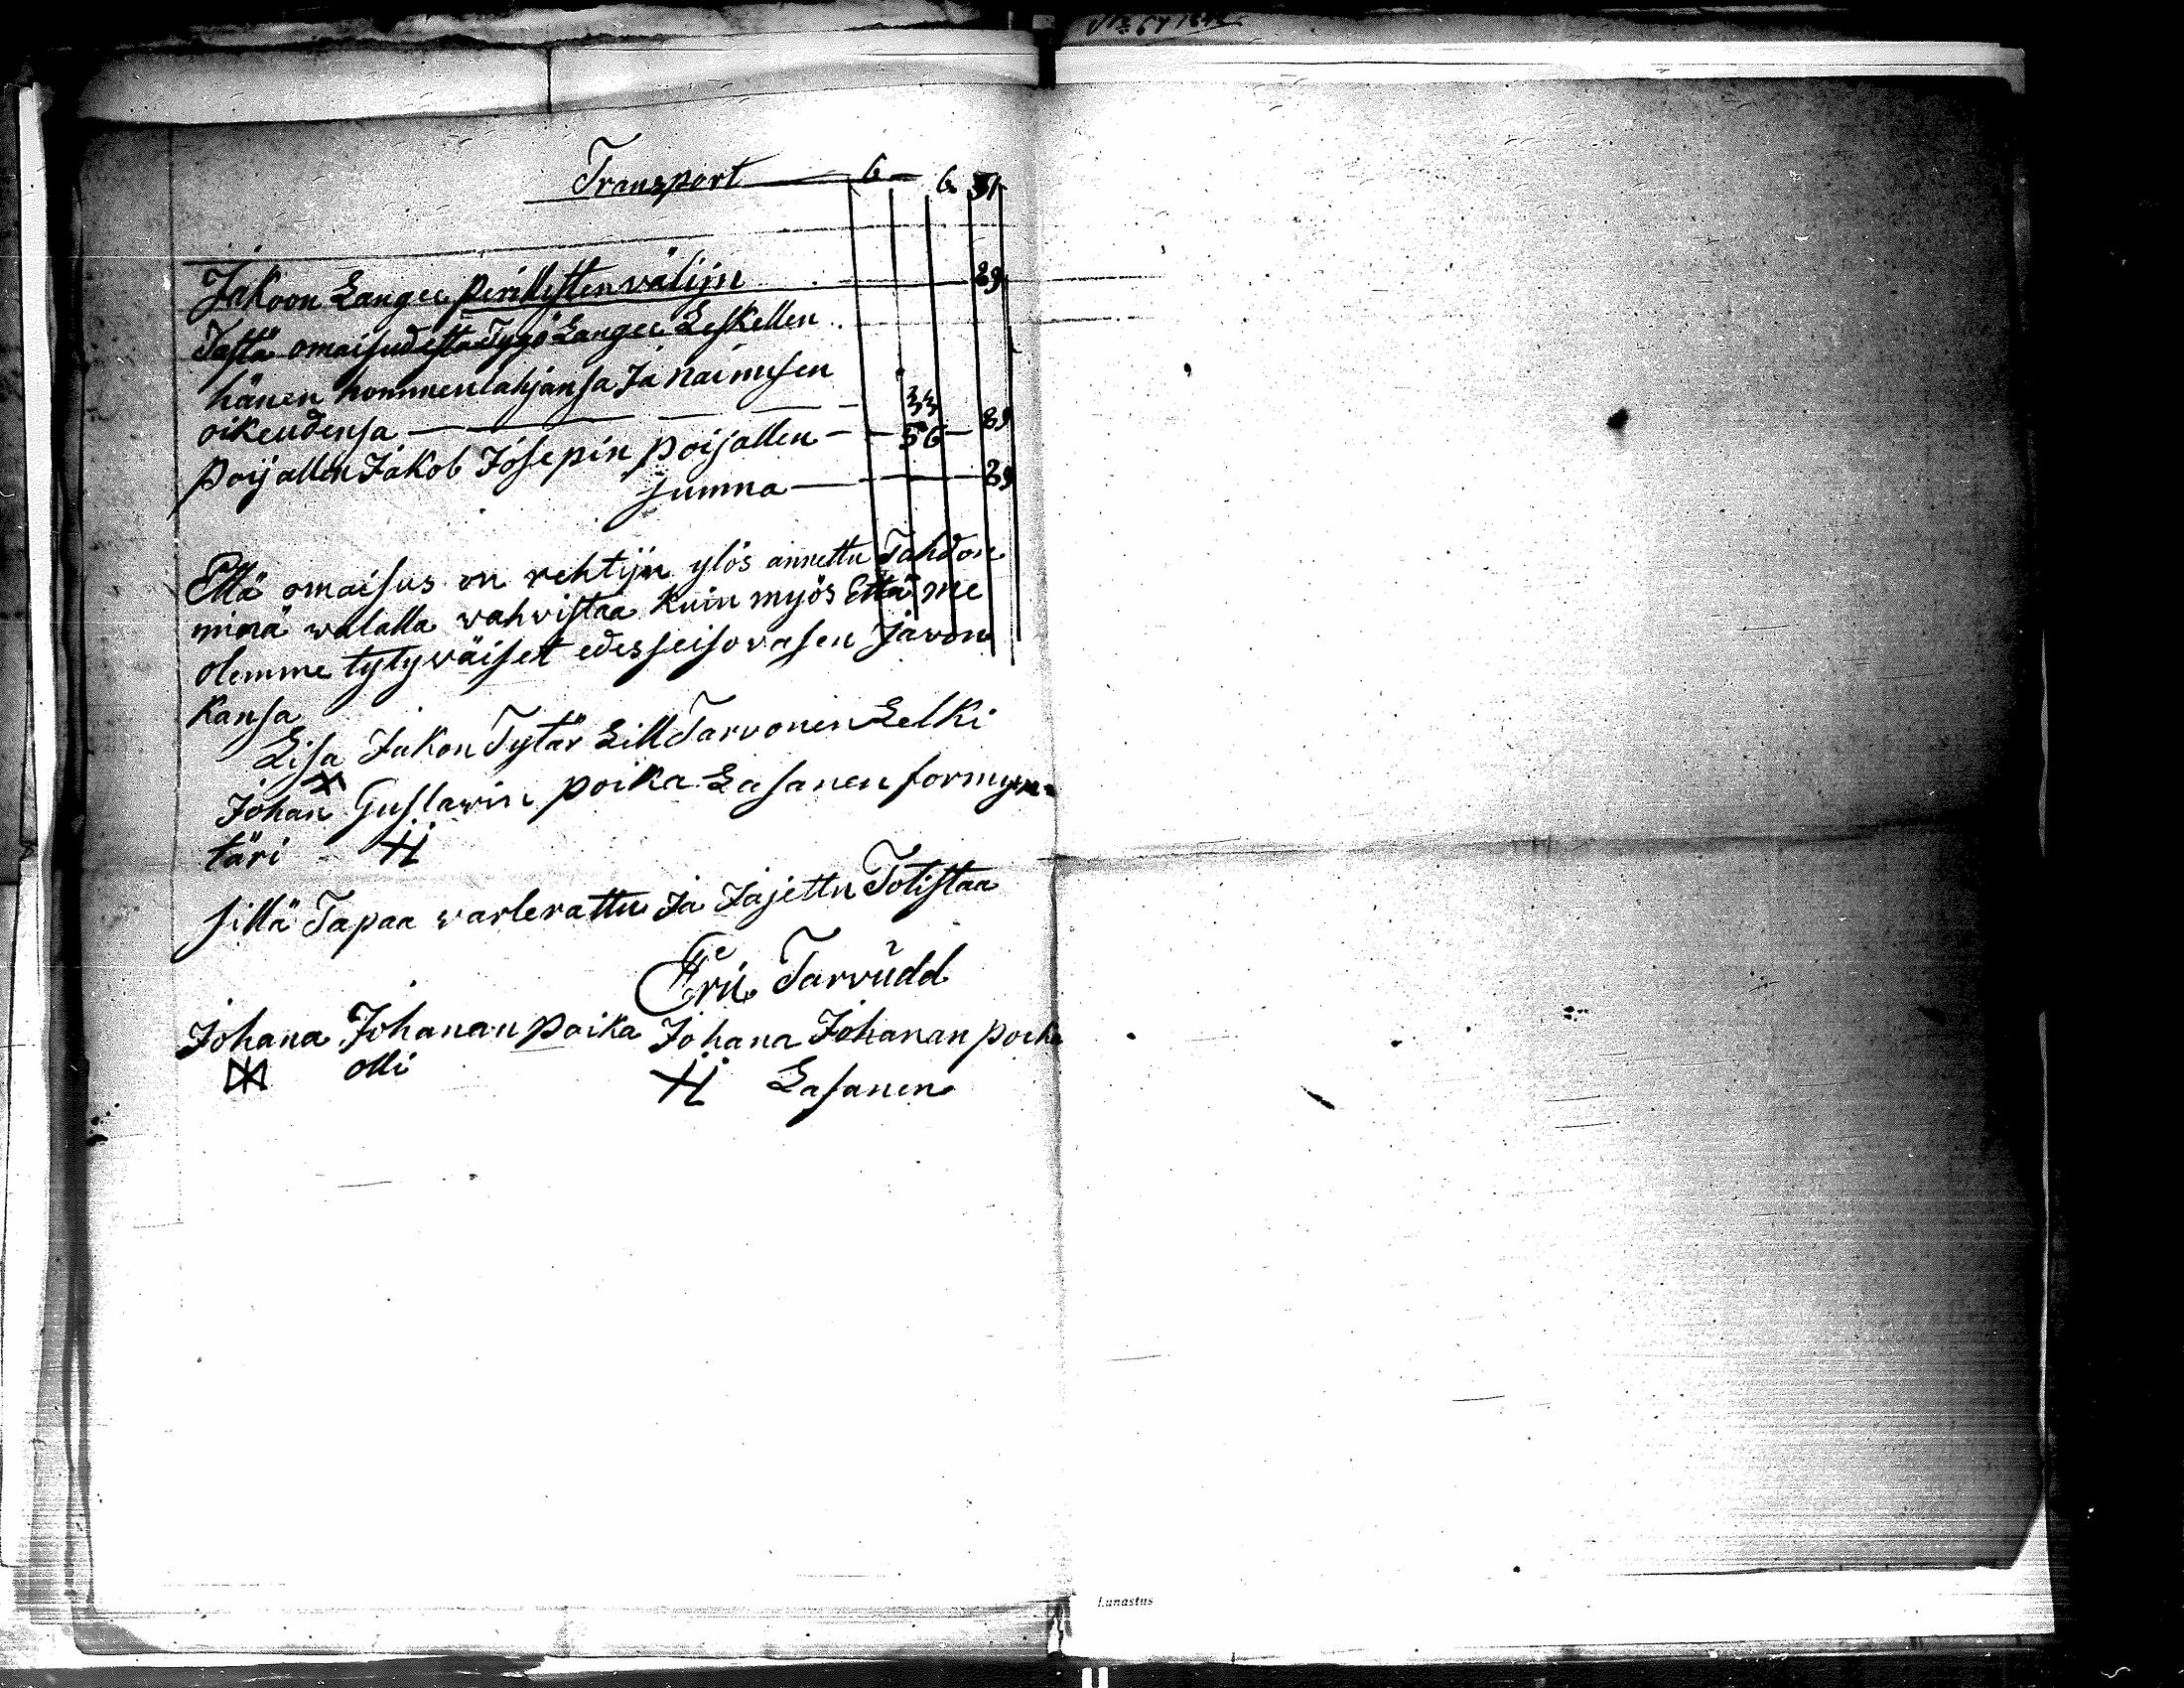 Transport 6 — 6 51
Jakoon Langee perillisten välijn — 89
Tästä omaisudesta Tygö Langee Leskellen
hänen hommenlahjansa Ja naimisen
oikeudensa — 33
poijallen Jakob Josepin poijallen — 56 — 89
summa — 89
Että omaisus on rehtijn ylös annettu Tahdon
minä walalla vahvistaa kuin myös Että me
olemme tytyväiset edesseisovasen javon
kansa
Lisa Jakon Tytär Lill Tarvonen Leski
Johan Gustawin poika Lasanen formyn-
täri
sillä Tapaa varlerattu Ja Jajettu Totistaa
Tarvudd
Johana Johanan poika Johana Johanan poika
olli Lasanen
Lunastus